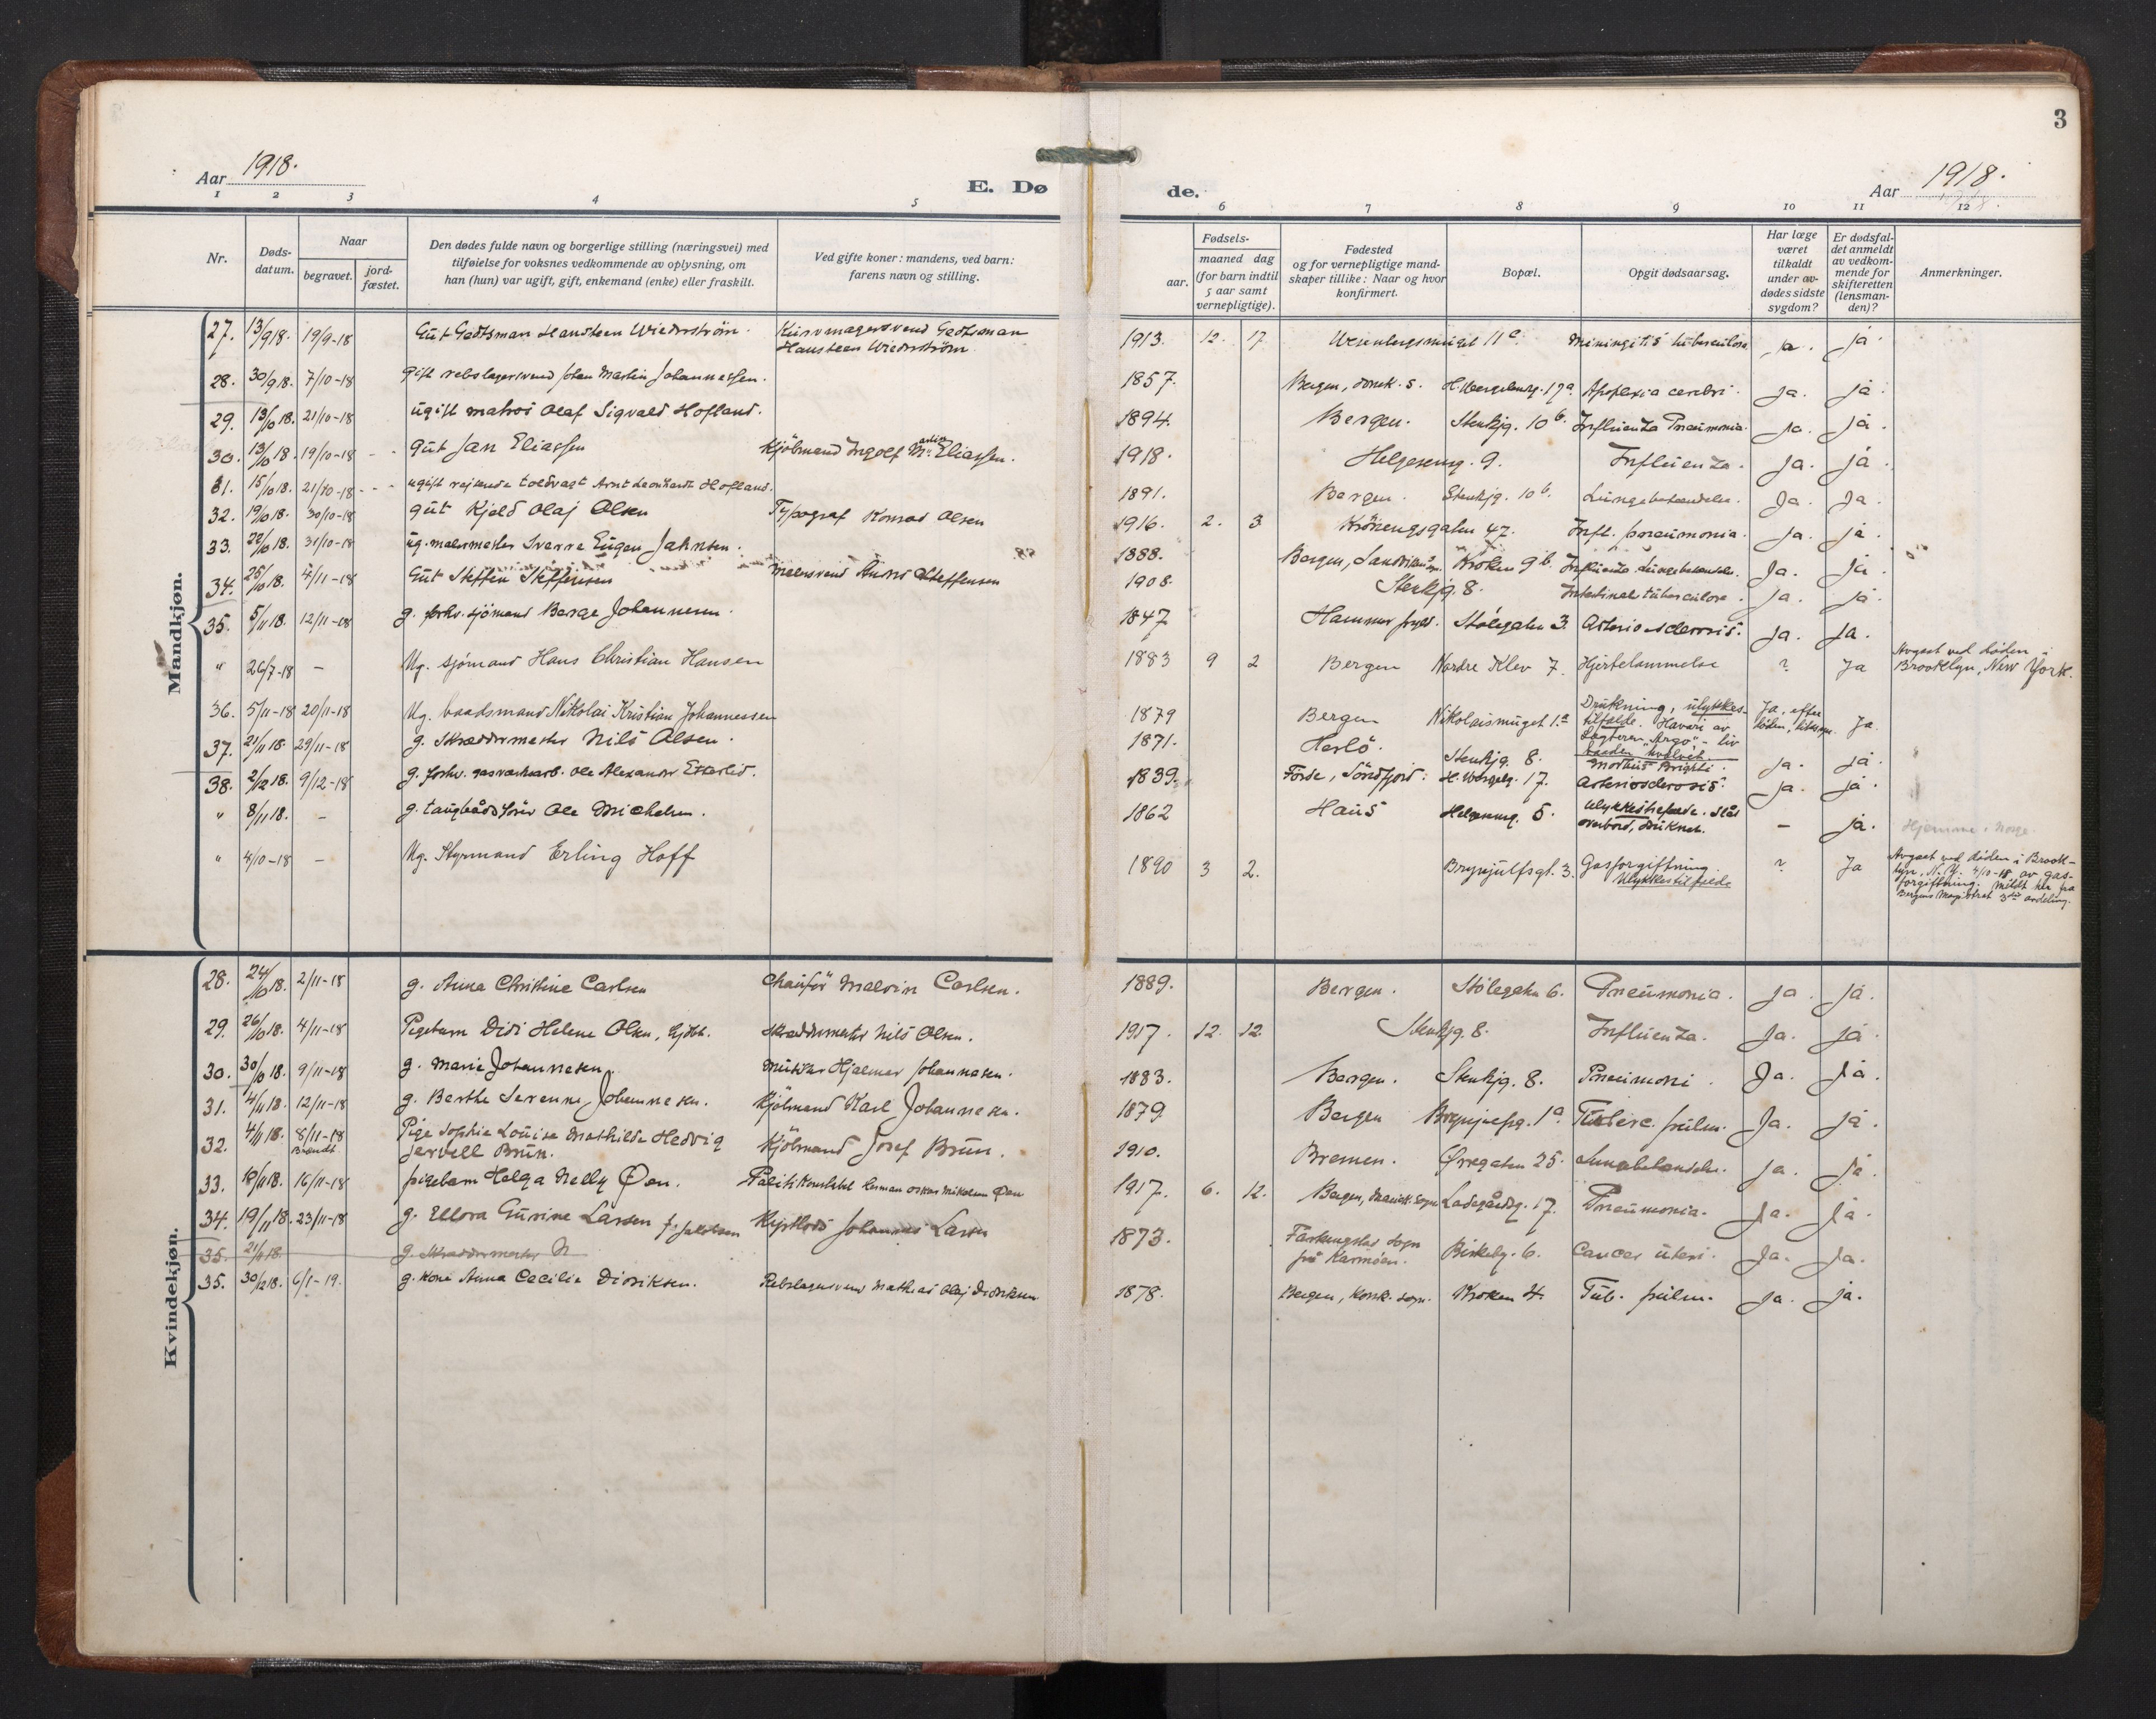 3
Aar 1918.
E. Dø
de.
Aar 1918.
1 2 3 4 5 6 7 8 9 10 11 12
Nr.
Døds-
datum.
Naar
begravet.
jord-
fæstet.
Den dødes fulde navn og borgerlige stilling (næringsvei) med
tilføielse for voksnes vedkommende av oplysning, om
han (hun) var ugift, gift, enkemand (enke) eller fraskilt.
Ved gifte koner: mandens, ved barn:
farens navn og stilling.
Fødsels-
aar.
maaned dag
(for barn indtil
5 aar samt
vernepligtige).
Fødested
og for vernepligtige mand-
skaper tillike: Naar og hvor
konfirmert.
Bopæl.
Opgit dødsaarsag.
Har læge
været
tilkaldt
under av-
dødes sidste
sygdom?
Er dødsfal-
det anmeldt
av vedkom-
mende for
skifteretten
(lensman-
den)?
Anmerkninger.
Mandkjøn.
27. 13/9 18. 19/9-18 Gut Gedtsman Hansteen Wiederstrøm. Kurvmagersvend Gedtsman
Hansteen Wiederstrøm 1913. 12. 17. 11 a. Miningitis tuberculosa ja. ja.
28. 30/9 18. 7/10-18 gift rebslagersvend Johan Martin Johannessen. 1857. Bergen, domk. s. 17a. Apoplexia cerebri. ja. ja.
29. 13/10 18. 21/10-18 ugift matros Olaf Sigvald Hofland. 1894. Bergen. Stenkjg. 10 b. Influenza Pneumonia. ja. ja.
30. 13/10 18. 19/10-18 - - gut Jan Eliassen Kjöbmand Ingolf Martin Eliassen. 1918. Helgesensg. 9. Influenza. ja. ja.
31. 15/10 18. 21/10-18 - - - ugift rejsende toldvagt Arnt Leonhardt Hofland. 1891. Bergen. Stenkjg. 10 b. Lungebetændelse. Ja. Ja.
32. 19/10 18. 30/10-18 gut Kjeld Olaj Olsen Typograf Konrad Olsen 1916. 2. 3 Krönengsgaten 47. Infl. pneumonia. ja. ja.
33. 22/10 18. 31/10-18 ug. malermester Sverre Eugen Jahnsen. 1888. Bergen, Kroken 9 b. Influenza Lungebetændelse. Ja. ja
34. 25/10 18. 4/11-18 Gut Steffen Steffensen Malersvend Steffensen 1908. Stenkjg. 8. Intestinal tuberculose. ja. ja.
35. 5/11 18. 12/11-18 g. forhv. sjömand Berge Johannesen. 1847 Hammer Stölegaten 3. Arteriosclerosis. ja. ja.
" 26/7-18 - Ug. sjömand Hans Christian Hansen 1883 9 2 Bergen Nordre Klev 7. Hjertelammelse ? Ja Avgaat ved døden i
Brooklyn, New York.
36. 5/11-18 20/11-18 Ug. baadsmand Nikolai Kristian Johannessen 1879 Bergen Nikolaismuget 1.a Drukning, ulykkes-
tilfælde. Havari av
Lægteren "Argo", - liv
baaden hvelvet. Ja, efter
döden, Ja.
37. 21/11 18. 29/11-18 g. Skræddermester Nils Olsen. 1871. Herlö. Stenkjg. 8. Morbus Brighti. ja. ja.
38. 2/12 18. 9/12-18 g. forhv. gasverksarb. Ole Alexander 1839. Förde, Söndfjord. H. Wergelg. 17. Arteriosclerosis. ja. ja.
" 8/11 18. - g. taugbådsförer Ole Michelsen. 1862 Haus 5. Ulykkestilfælde. Slåt
overbord, druknet. - ja. Hjemme i Norge
" 4/10-18 - Ug. Styrmand Erling Hoff 1890 3 2. Brynjulfsgt. 3. Gasforgiftning.
Ulykkestilfælde ? Ja Avgaat ved døden i Brook-
lyn, N. Y. 4/10-18 av gas-
forgiftning. Meldt her fra
Bergens Magistrat 3die avdeling.
Kvindekjøn.
28. 24/10 18. 2/11-18 g. Anna Christine Carlsen Chaufør Malvin Carlsen. 1889. Bergen. Stölegaten 6. Pneumonia. ja. ja.
29. 26/10 18. 4/11-18 Pigebarn Didi Helene Olsen, Skræddermester Nils Olsen. 1917. 12. 12. Stenkjg. 8. Influenza. Ja. ja
30. 30/10 18. 9/11-18 g. Marie Johannesen. Musiker Hjalmar Johannesen. 1883. Bergen. Stenkjg. 8. Pneumoni. Ja. ja.
31. 4/11 18. 12/11-18 g. Berthe Severine Johannesen. Kjöbmand Karl Johannesen. 1879. Bergen 1a Tuberc. pulm. Ja. ja.
32. 4/11 18. 8/11-18
Brændt Pige Sophie Louise Mathilde Hedvig
Jervell Brun. Kjöbmand Josef Brun. 1910. Bremen. Øvregaten 25. Lungebetændelse. ja. ja
33. 10/11 18. 16/11-18 pigebarn Helga Nelly Øen. Politikonstabel Herman Oskar Mikalsen Øen 1917. 6. 12. Bergen, Mariek. sogn Ladegårdsg. 17. Pneumonia. Ja. ja.
34. 19/11 18. 23/11-18 g. Ellora Gurine Larsen f. Jakobsen Kystlods Johannes Larsen 1873. sogn
på Karmøen. Birkelg. 6. Cancer uteri. Ja. Ja.
35. 21/11 18 g. Skræddermester N
35. 30/12 18. 6/1-19. g. kone Anna Cecilie Didriksen. Rebslagersvend Mathias Olaj Didriksen 1878. Bergen, Korsk. sogn. Kroken 4. Tub. pulm. Ja. ja.